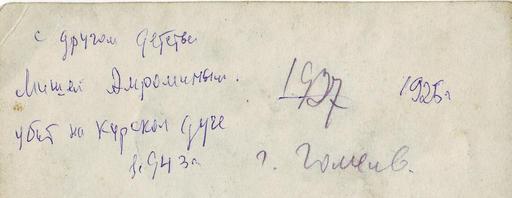 с другом детства
Мишей Амроминым.
убит на Курской дуге
1943г.
1937
1925г
г. Гомель.